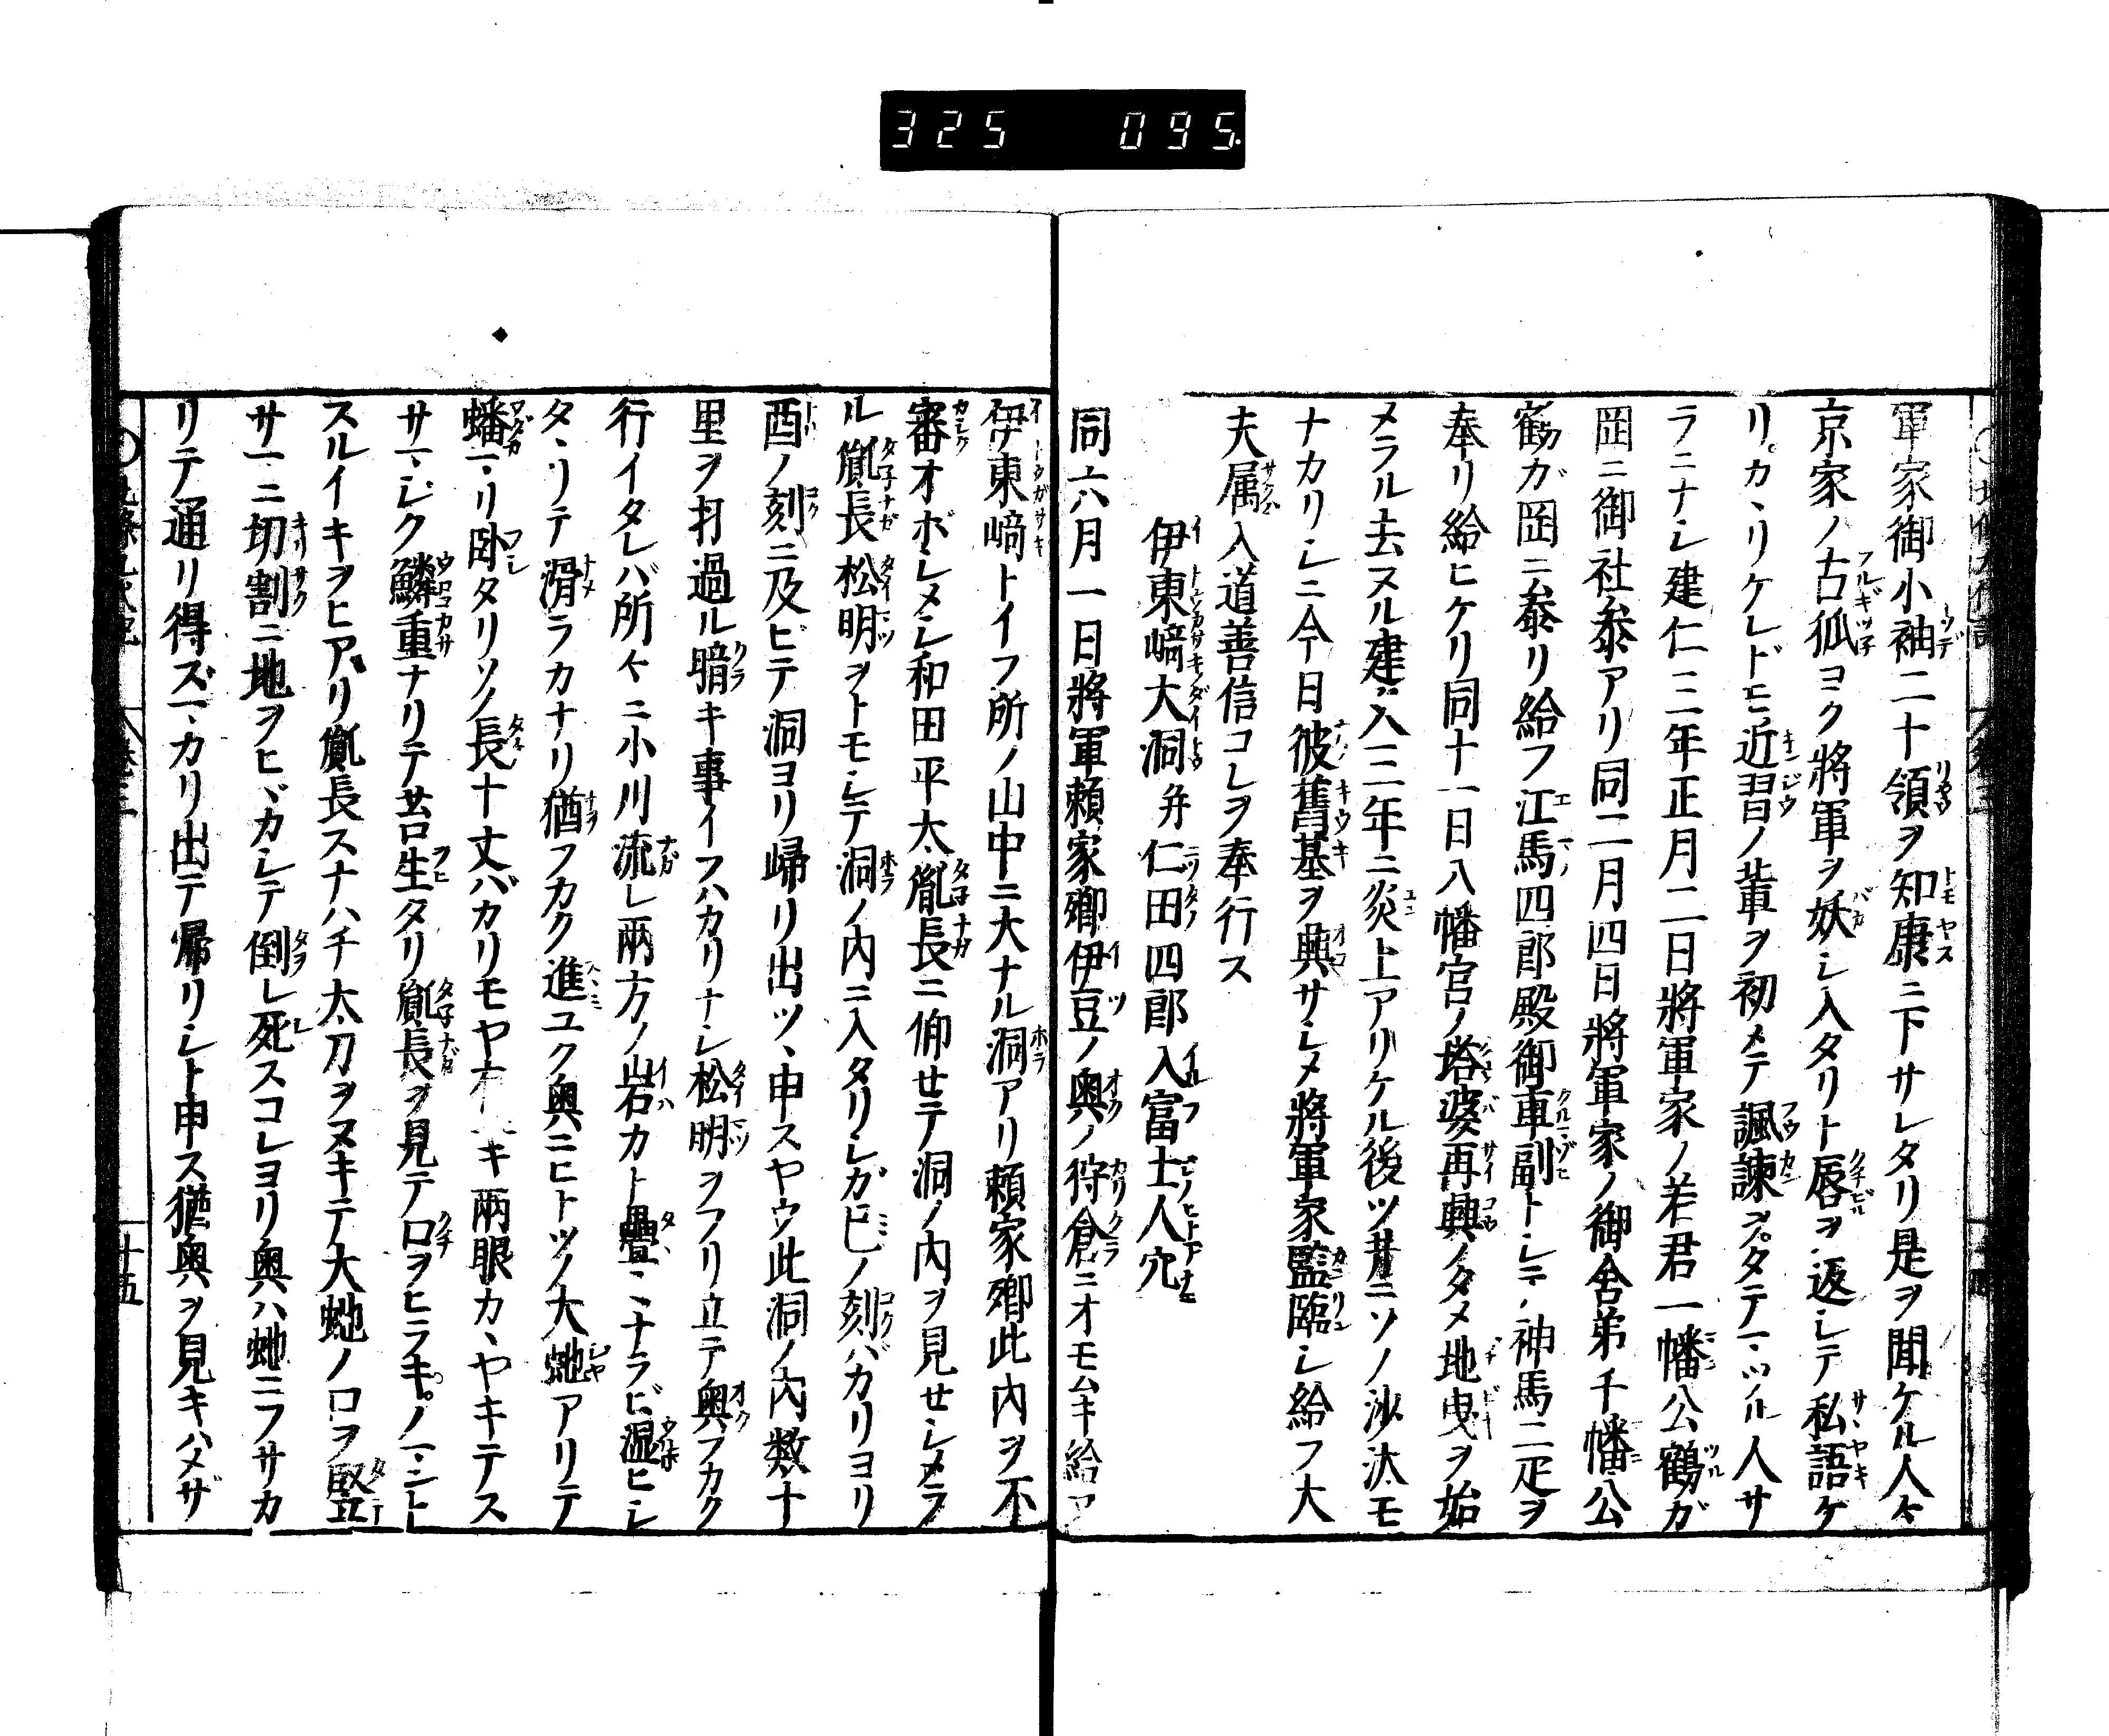 325 095.
軍家御小袖二十領ヲ知康ニ下サレタリ是ヲ聞ケル人々
京家ノ古狐ヨク將軍ヲ妖シ入タリト唇ヲ返シテ私語ケ
リ。カヽリケレドモ近習ノ輩ヲ初メテ諷諫ヲタテマツル人サ
ラニナシ建仁三年正月二日將軍家ノ若君一幡公鶴ガ
岡ニ御社参アリ同二月四日將軍家ノ御舎弟千幡公
鶴ガ岡ニ参リ給フ江馬四郎殿御車副トシテ神馬二疋ヲ
奉リ給ヒケリ同十一日八幡宮ノ塔婆再興ノタメ地曳ヲ始
メラル去ヌル建久二年ニ炎上アリケル後ツ井ニソノ沙汰モ
ナカリシニ今日彼舊基ヲ興サシメ將軍家監臨シ給フ大
夫属入道善信コレヲ奉行ス
伊東﨑大洞并仁田四郎入富士人穴
同六月一日將軍頼家卿伊豆ノ奥ノ狩倉ニオモムキ給フ
伊東﨑トイフ所ノ山中ニ大ナル洞アリ頼家卿此内ヲ不
審オボシメシ和田平太胤長ニ仰セテ洞ノ内ヲ見セシメラ
ル胤長松明ヲトモシテ洞ノ内ニ入タリシガ巳ノ刻バカリヨリ
酉ノ刻ニ及ビテ洞ヨリ帰リ出ツヽ申スヤウ此洞ノ内数十
里ヲ打過ル暗キ事イフハカリナシ松明ヲフリ立テ奥フカク
行イタレバ所々ニ小川流レ兩方ノ岩カト疊ヽニナラビ湿ヒシ
タヽリテ滑ラカナリ猶フカク進ユク奥ニヒトツノ大虵アリテ
蟠マリ臥タリソノ長十丈バカリモヤ有キ兩眼カヽヤキテス
サマシク鱗重ナリテ苔生タリ胤長ヲ見テ口ヲヒラキ。ノマント
スルイキヲヒアリ胤長スナハチ太刀ヲヌキテ大虵ノ口ヲ竪
サマニ切割ニ地ヲヒヾカシテ倒レ死スコレヨリ奥ハ虵ニフサカ
リテ通リ得ズマカリ出テ帰リシト申ス猶奥ヲ見キハメザ
十五